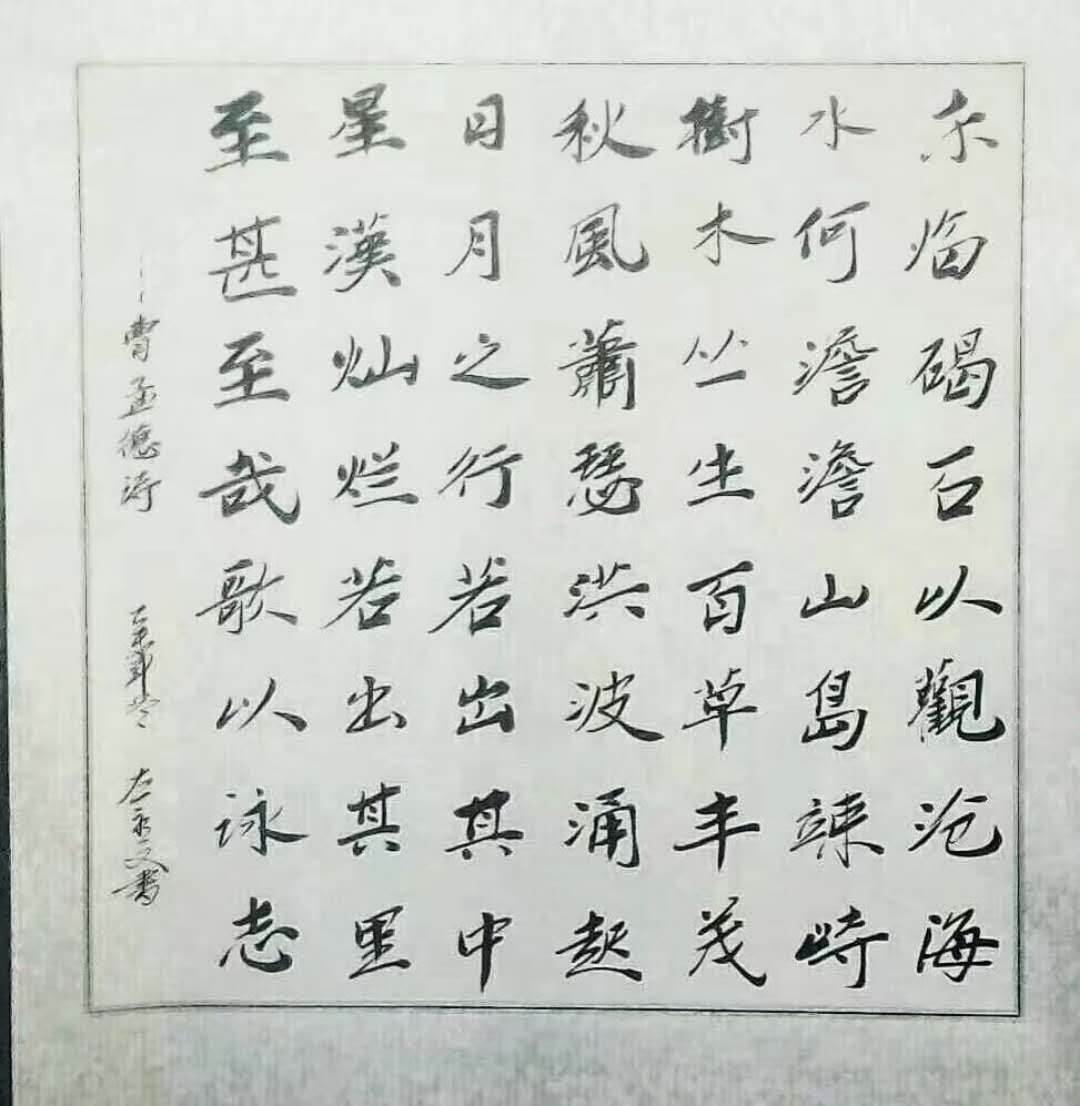 东临碣石以觀沧海
水何澹澹山島竦峙
樹木丛生百草丰茂
秋風蕭瑟洪波涌起
日月之行若出其中
星漢灿烂若出其里
至甚至哉歌以詠志
曹孟德诗 年 左 文書